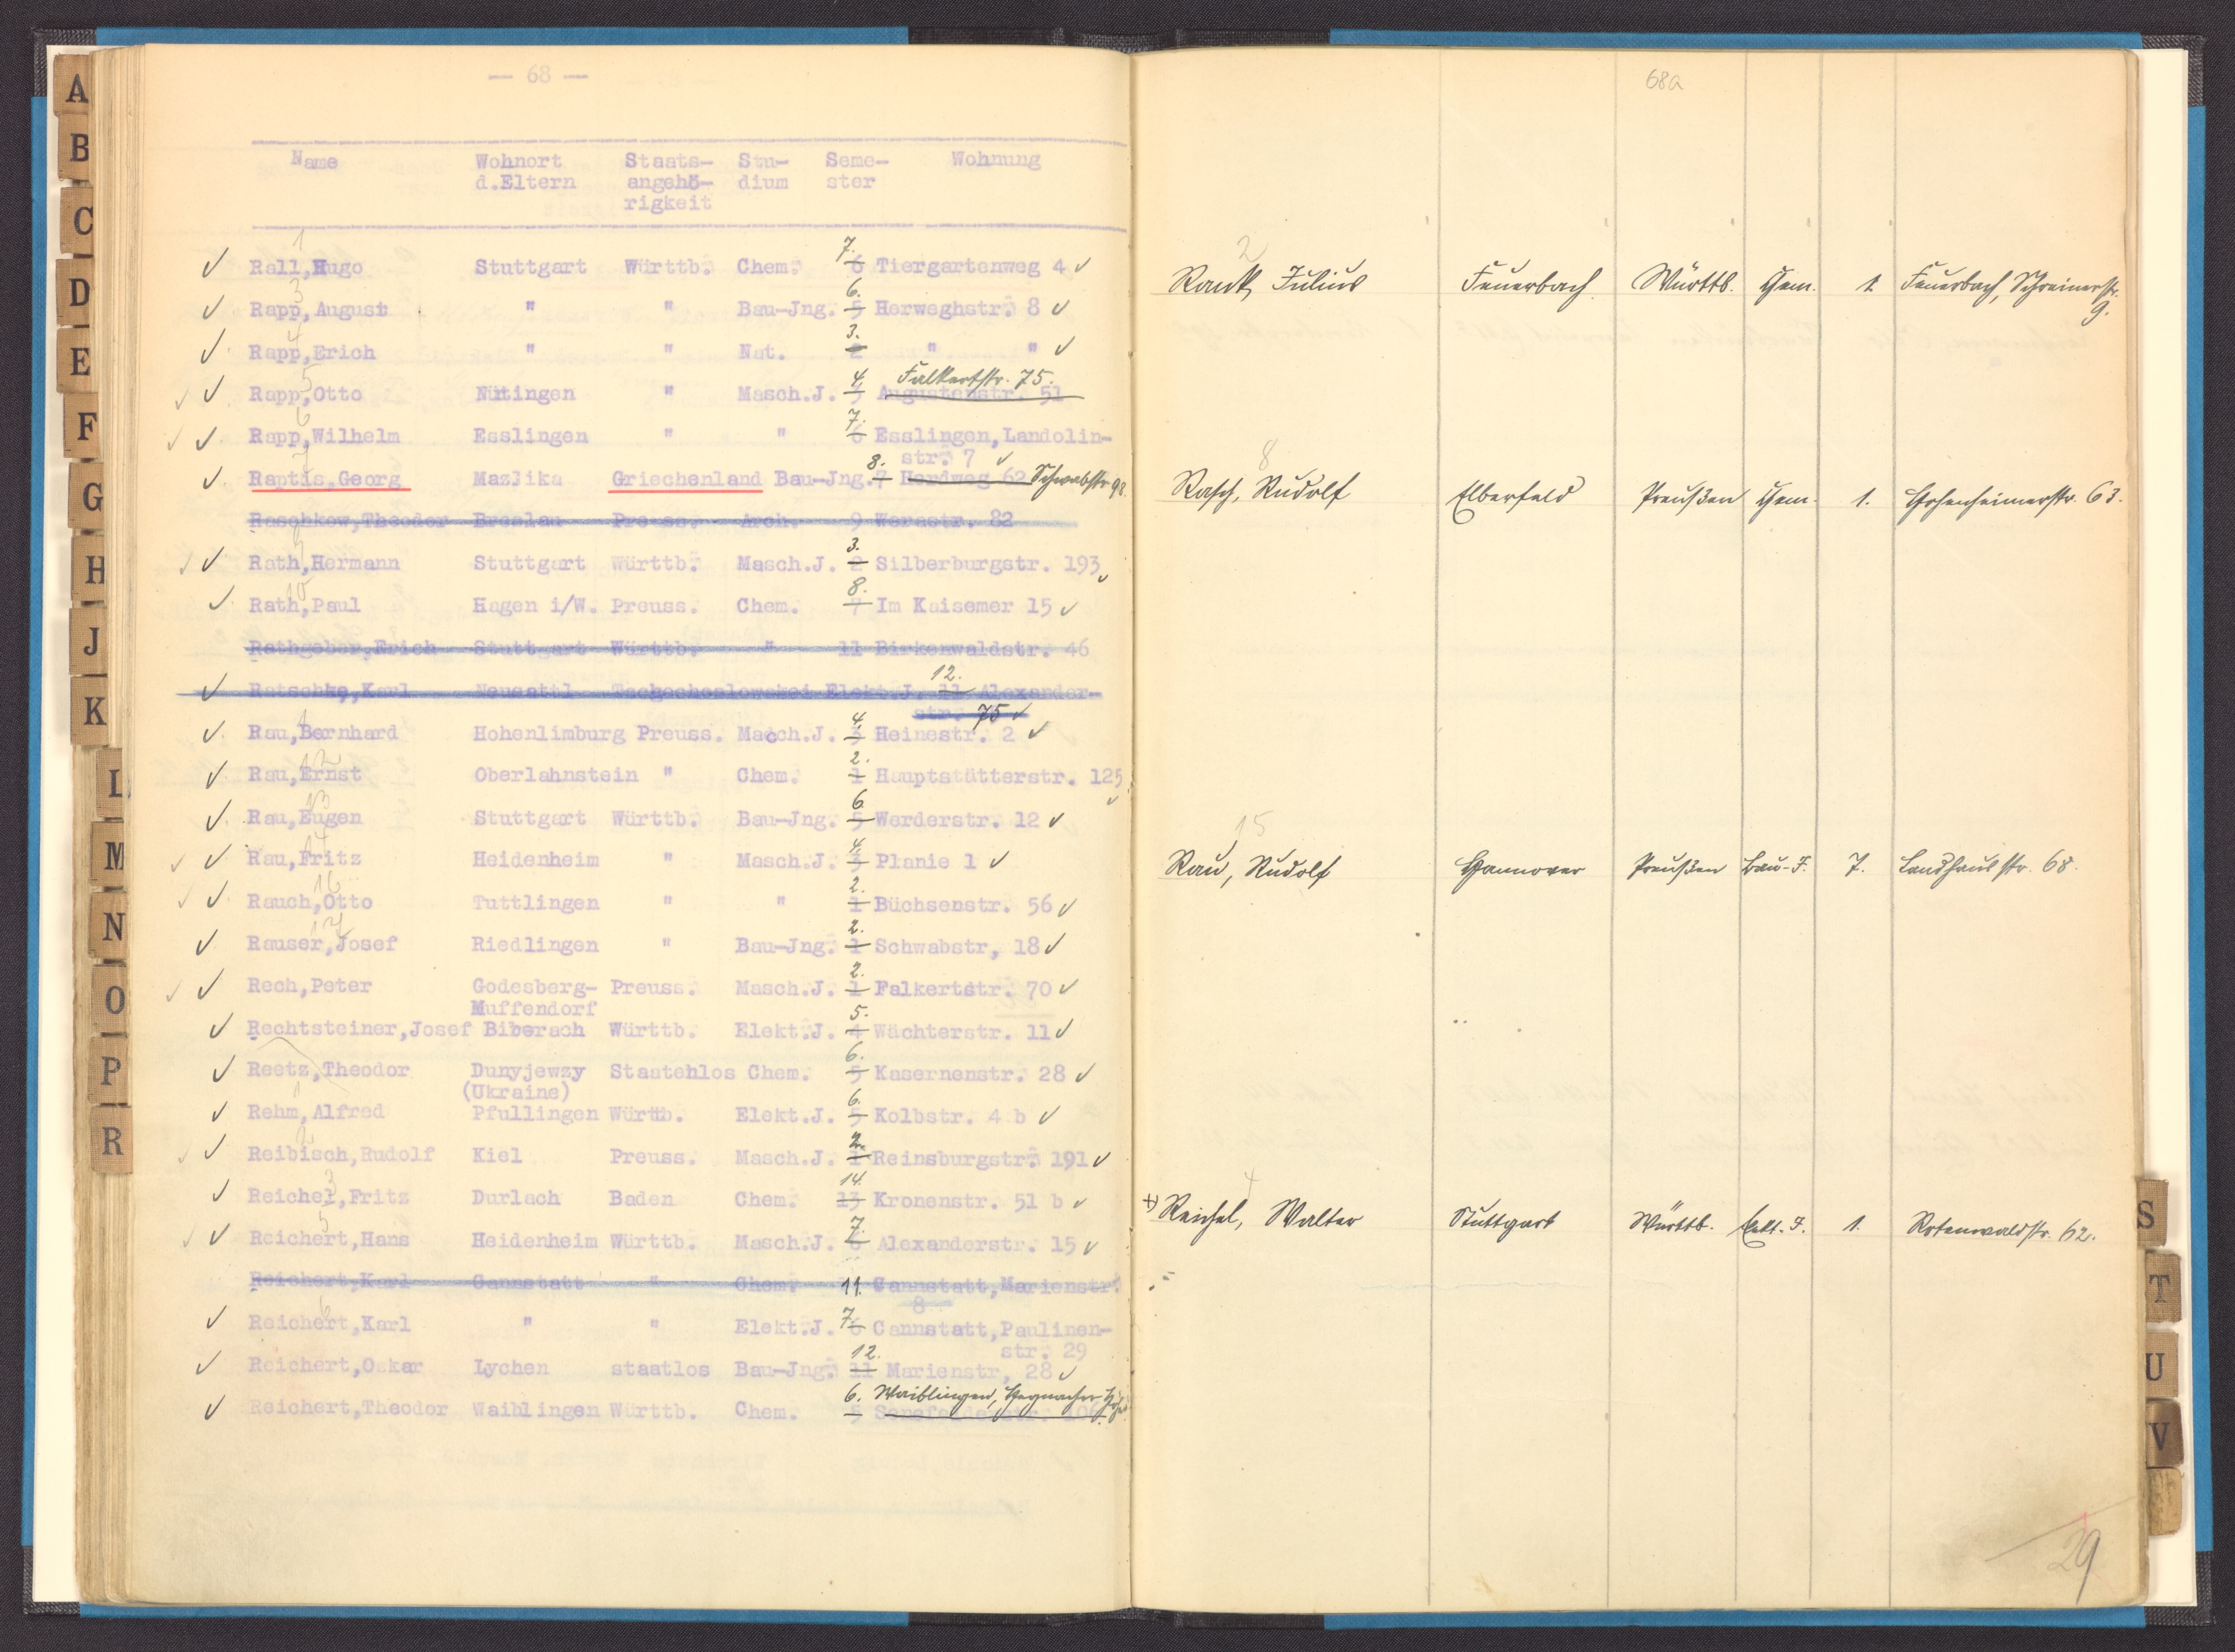 — 68 —
Name Wohnort Staats- Stu- Seme- Wohnung
d.Eltern angehö- dium ster
rigkeit
1
✓ Rall,Hugo Stuttgart Württb. Chem. 6 7. Tiergartenweg 4 ✓
3
✓ Rapp,August " " Bau-Jng. 5 6. Herweghstr. 8 ✓
4
✓ Rapp,Erich " " Nat. 2 3. " " ✓
5 Falkertstr. 75.
✓ Rapp,Otto Nütingen " Masch.J. 3 4. Augustenstr. 51
6
✓ Rapp,Wilhelm Esslingen " " 6 7. Esslingen,Landolin-
str. 7 ✓
7
✓ Raptis,Georg Mazlika Griechenland Bau-Jng. 7 8. Herdweg 62 Schwabstr. 98
Raschkow,Theodor Breslau Preuss. Arch. 9 Werastr. 82
9
✓ Rath,Hermann Stuttgart Württb. Masch.J. 2 3. Silberburgstr. 193 ✓
10
✓ Rath,Paul Hagen i/W. Preuss. Chem. 7 8. Im Kaisemer 15 ✓
Rathgeber,Erich Stuttgart Württb. " 11 Birkenwaldstr. 46
✓ Ratschke,Karl Neusattl Tschechoslowakei Elekt.J. 11 12. Alexander-
str. 75 ✓
✓ Rau,Bernhard Hohenlimburg Preuss. Masch.J. 3 4. Heinestr. 2 ✓
12
✓ Rau,Ernst Oberlahnstein " Chem. 1 2. Hauptstätterstr. 125 ✓
13
✓ Rau,Eugen Stuttgart Württb. Bau-Jng. 5 6. Werderstr. 12 ✓
14
✓ Rau,Fritz Heidenheim " Masch.J. 3 4. Planie 1 ✓
16
✓ Rauch,Otto Tuttlingen " " 1 2. Büchsenstr. 56 ✓
17
✓ Rauser,Josef Riedlingen " Bau-Jng. 1 2. Schwabstr, 18 ✓
✓ Rech,Peter Godesberg- Preuss. Masch.J. 1 2. Falkertstr. 70 ✓
Muffendorf
✓ Rechtsteiner,Josef Biberach Württb. Elekt.J. 4 5. Wächterstr. 11 ✓
✓ Reetz,Theodor Dunyjewzy Staatenlos Chem. 5 6. Kasernenstr. 28 ✓
(Ukraine)
1
✓ Rehm,Alfred Pfullingen Württb. Elekt.J. 5 6. Kolbstr. 4 b ✓
2
✓ Reibisch,Rudolf Kiel Preuss. Masch.J. 1 2. Reinsburgstr. 191 ✓
3
✓ Reichel,Fritz Durlach Baden Chem. 13 14. Kronenstr. 51 b ✓
5
✓ Reichert,Hans Heidenheim Württb. Masch.J. 6 7. Alexanderstr. 15 ✓
Reichert,Karl Cannstatt " Chem. 11. Cannstatt,Marienstr.
8
6
✓ Reichert,Karl " " Elekt.J. 6 7. Cannstatt,Paulinen-
str. 29
✓ Reichert,Oskar Lychen staatlos Bau-Jng. 11 12. Marienstr, 28 ✓
6. Waiblingen,
✓ Reichert,Theodor Waiblingen Württb. Chem. 5 Senefelderstr. 106
68a
2
Rank, Julius Feuerbach. Württb. Chem. 1. Feuerbach, Schreinerstr.
9.
8
Rasch, Rudolf Elberfeld Preußen Chem. 1. Hohenheimerstr. 63.
15
Rau, Rudolf Hannover Preußen Bau-J. 7. Landhausstr. 68.
4
Reichel, Walter Stuttgart Württb. Elekt.-J. 1. Rotenwaldstr. 62.
29
A
B
C
D
E
F
G
H
J
K
L
M
N
O
P
R
S
T
U
V